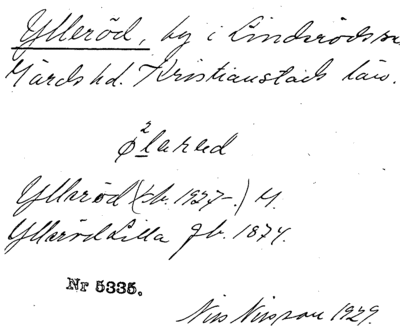 Ylleröd, by i Linderöds sn
Gärds hd. Kristianstads län.
2
ølared
Ylleröd (sb. 1927-.) M.
Ylleröd Lilla gb. 1874.
Nr 5335.
Nils Nilsson 1929.